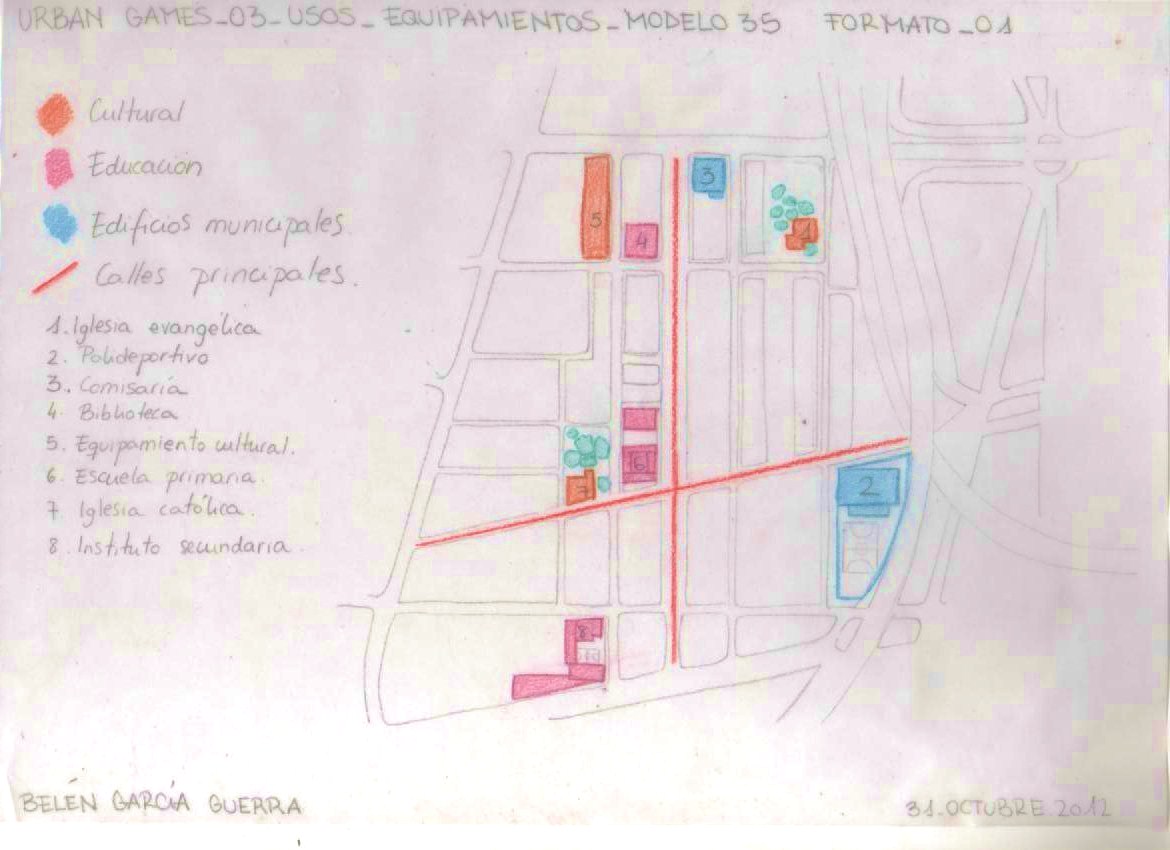 URBAN GAMES_03_USOS_EQUIPAMIENTOS_MODELO 35 FORMATO_01
Cultural
Educación
Edificios municipales.
Calles principales.
1. Iglesia evangélica
2. Polideportivo
3. Comisaría
4. Biblioteca
5. Equipamiento cultural.
6. Escuela primaria.
7. Iglesia católica.
8. Instituto secundaria.
5
4
3
1
6
7
2
8
BELÉN GARCÍA GUERRA
31.OCTUBRE.2012